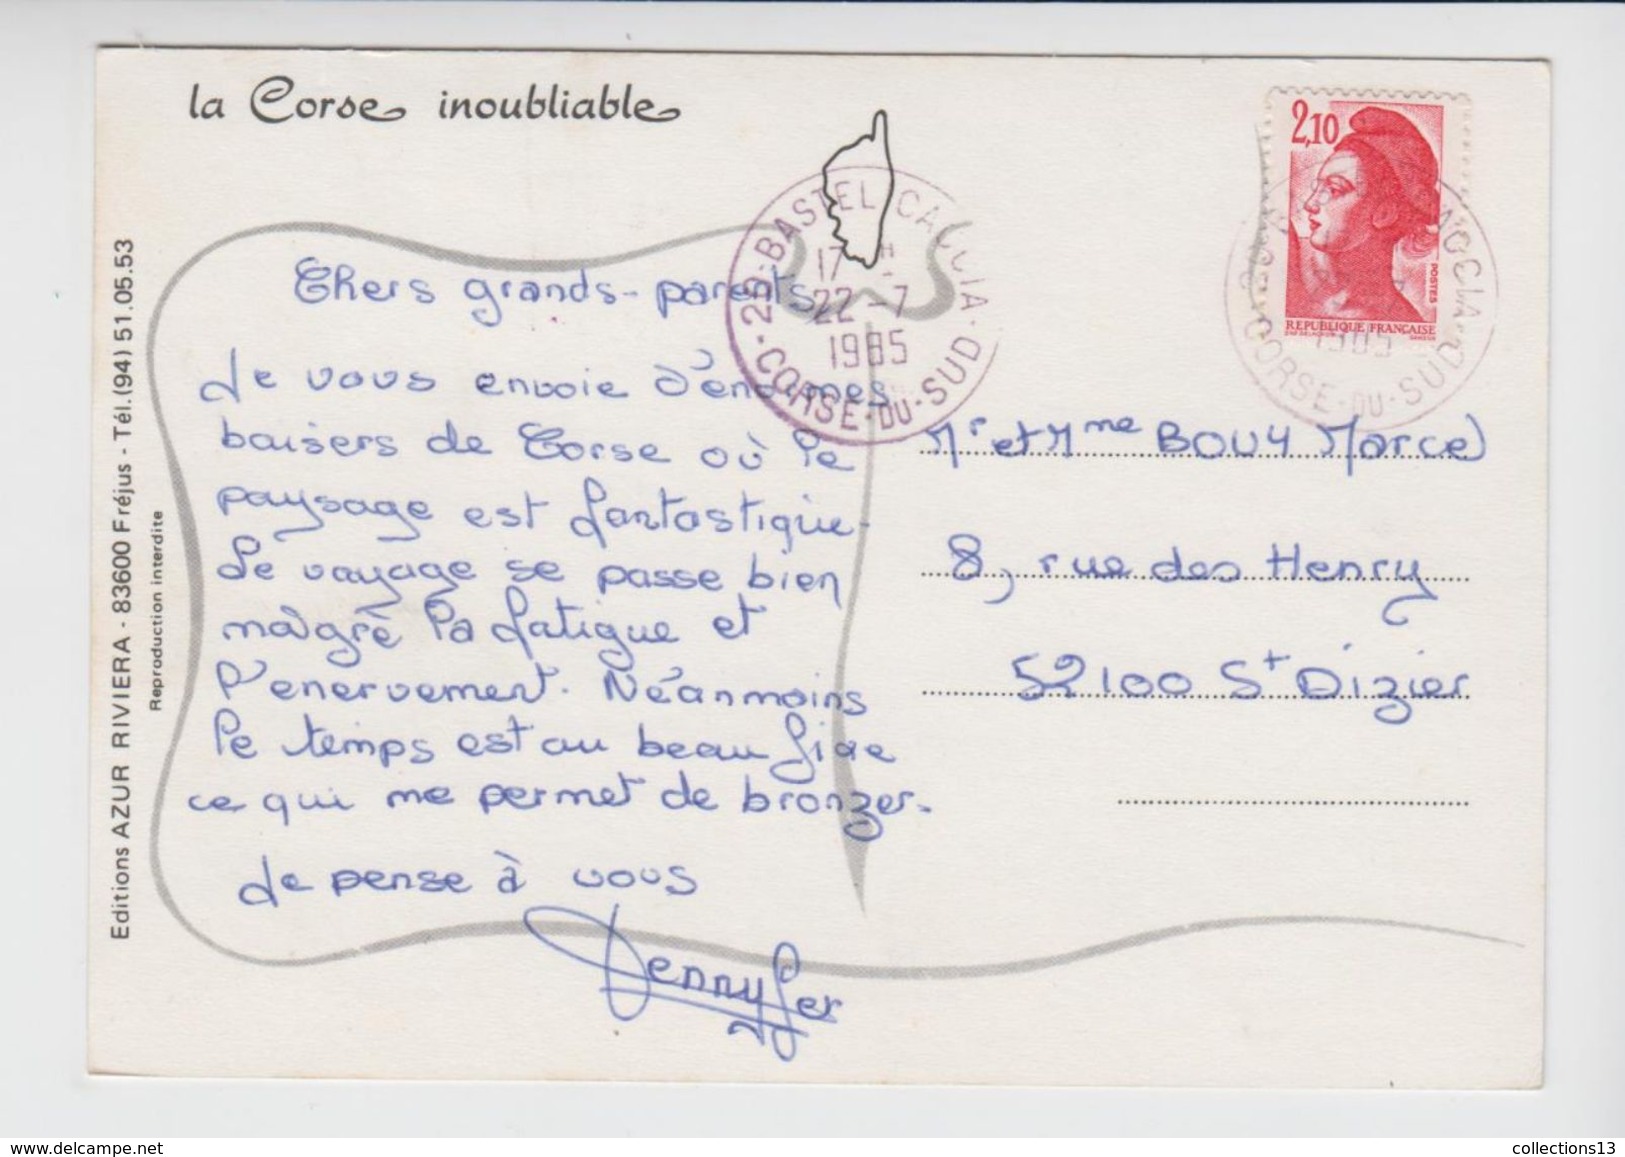 la Corse inoubliable
Chers grands-parents
Je vous envoie d'énormes
baisers de Corse où le
paysage est fantastique.
Le voyage se passe bien
malgrè la fatigue et
l'enervement. Néanmoins
le temps est au beau fixe
ce qui me permet de bronzer.
Je pense à vous
Jennyfer
Editions AZUR RIVIERA - 83600 Fréjus - Tél. (94) 51.05.53
Reproduction interdite
BASTELICACCIA
17 H
22 -7
1985
CORSE-DU-SUD
2,10
POSTES
REPUBLIQUE FRANÇAISE
1985
CORSE-DU-SUD
Mr et Mme BOUY Marcel
8, rue des Henry
52100 St Dizier
collections13